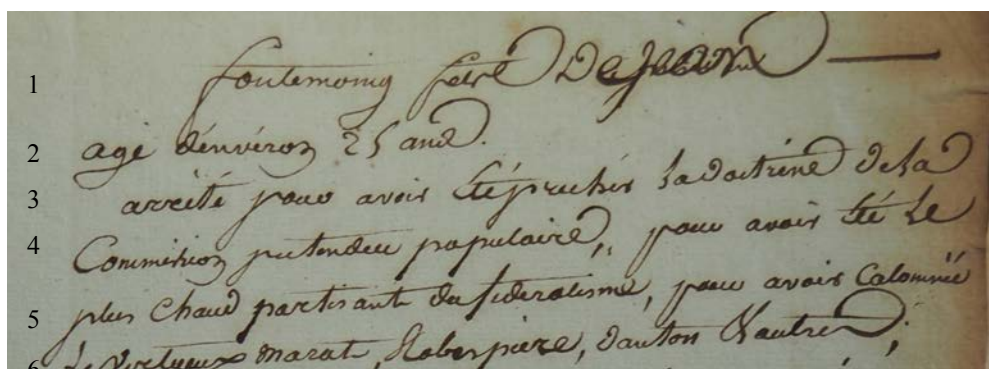 1 foulemoing fils De Jean
2 agé dénvéron 25 ans.
3 arrété pour avoir été precher La doctrine De la
4 Commission pretendeu populaire, pour avoir été Le
5 plus Chaud partisant du federalisme, pour avoir Calomnié
6 Le vertueux marat, Roberpierre, danton & autres,